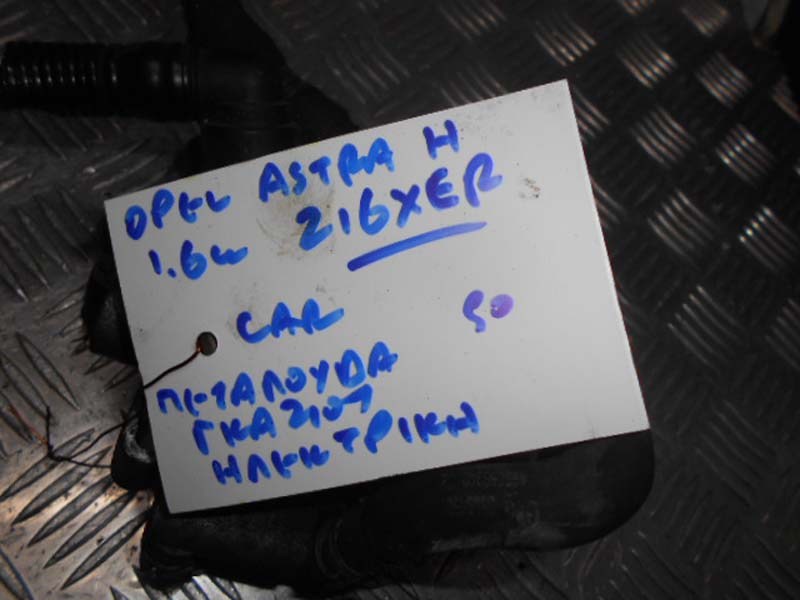 OPEL ASTRA H
1.6cc Z16XER
CAR 50
ΠΕΤΑΛΟΥΔΑ
ΓΚΑΖΙΟΥ
ΗΛΕΚΤΡΙΚΗ